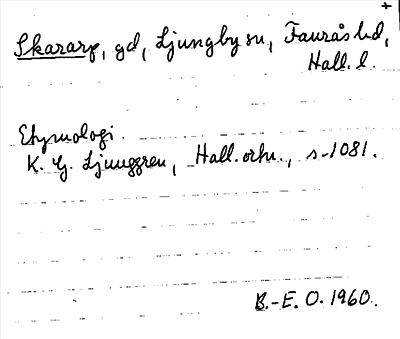 +
Skararp, gd, Ljungby sn, Faurås hd,
Hall. l.
Etymologi.
K. G. Ljunggren, Hall. ortn., s. 1081.
B.-E. O. 1960.